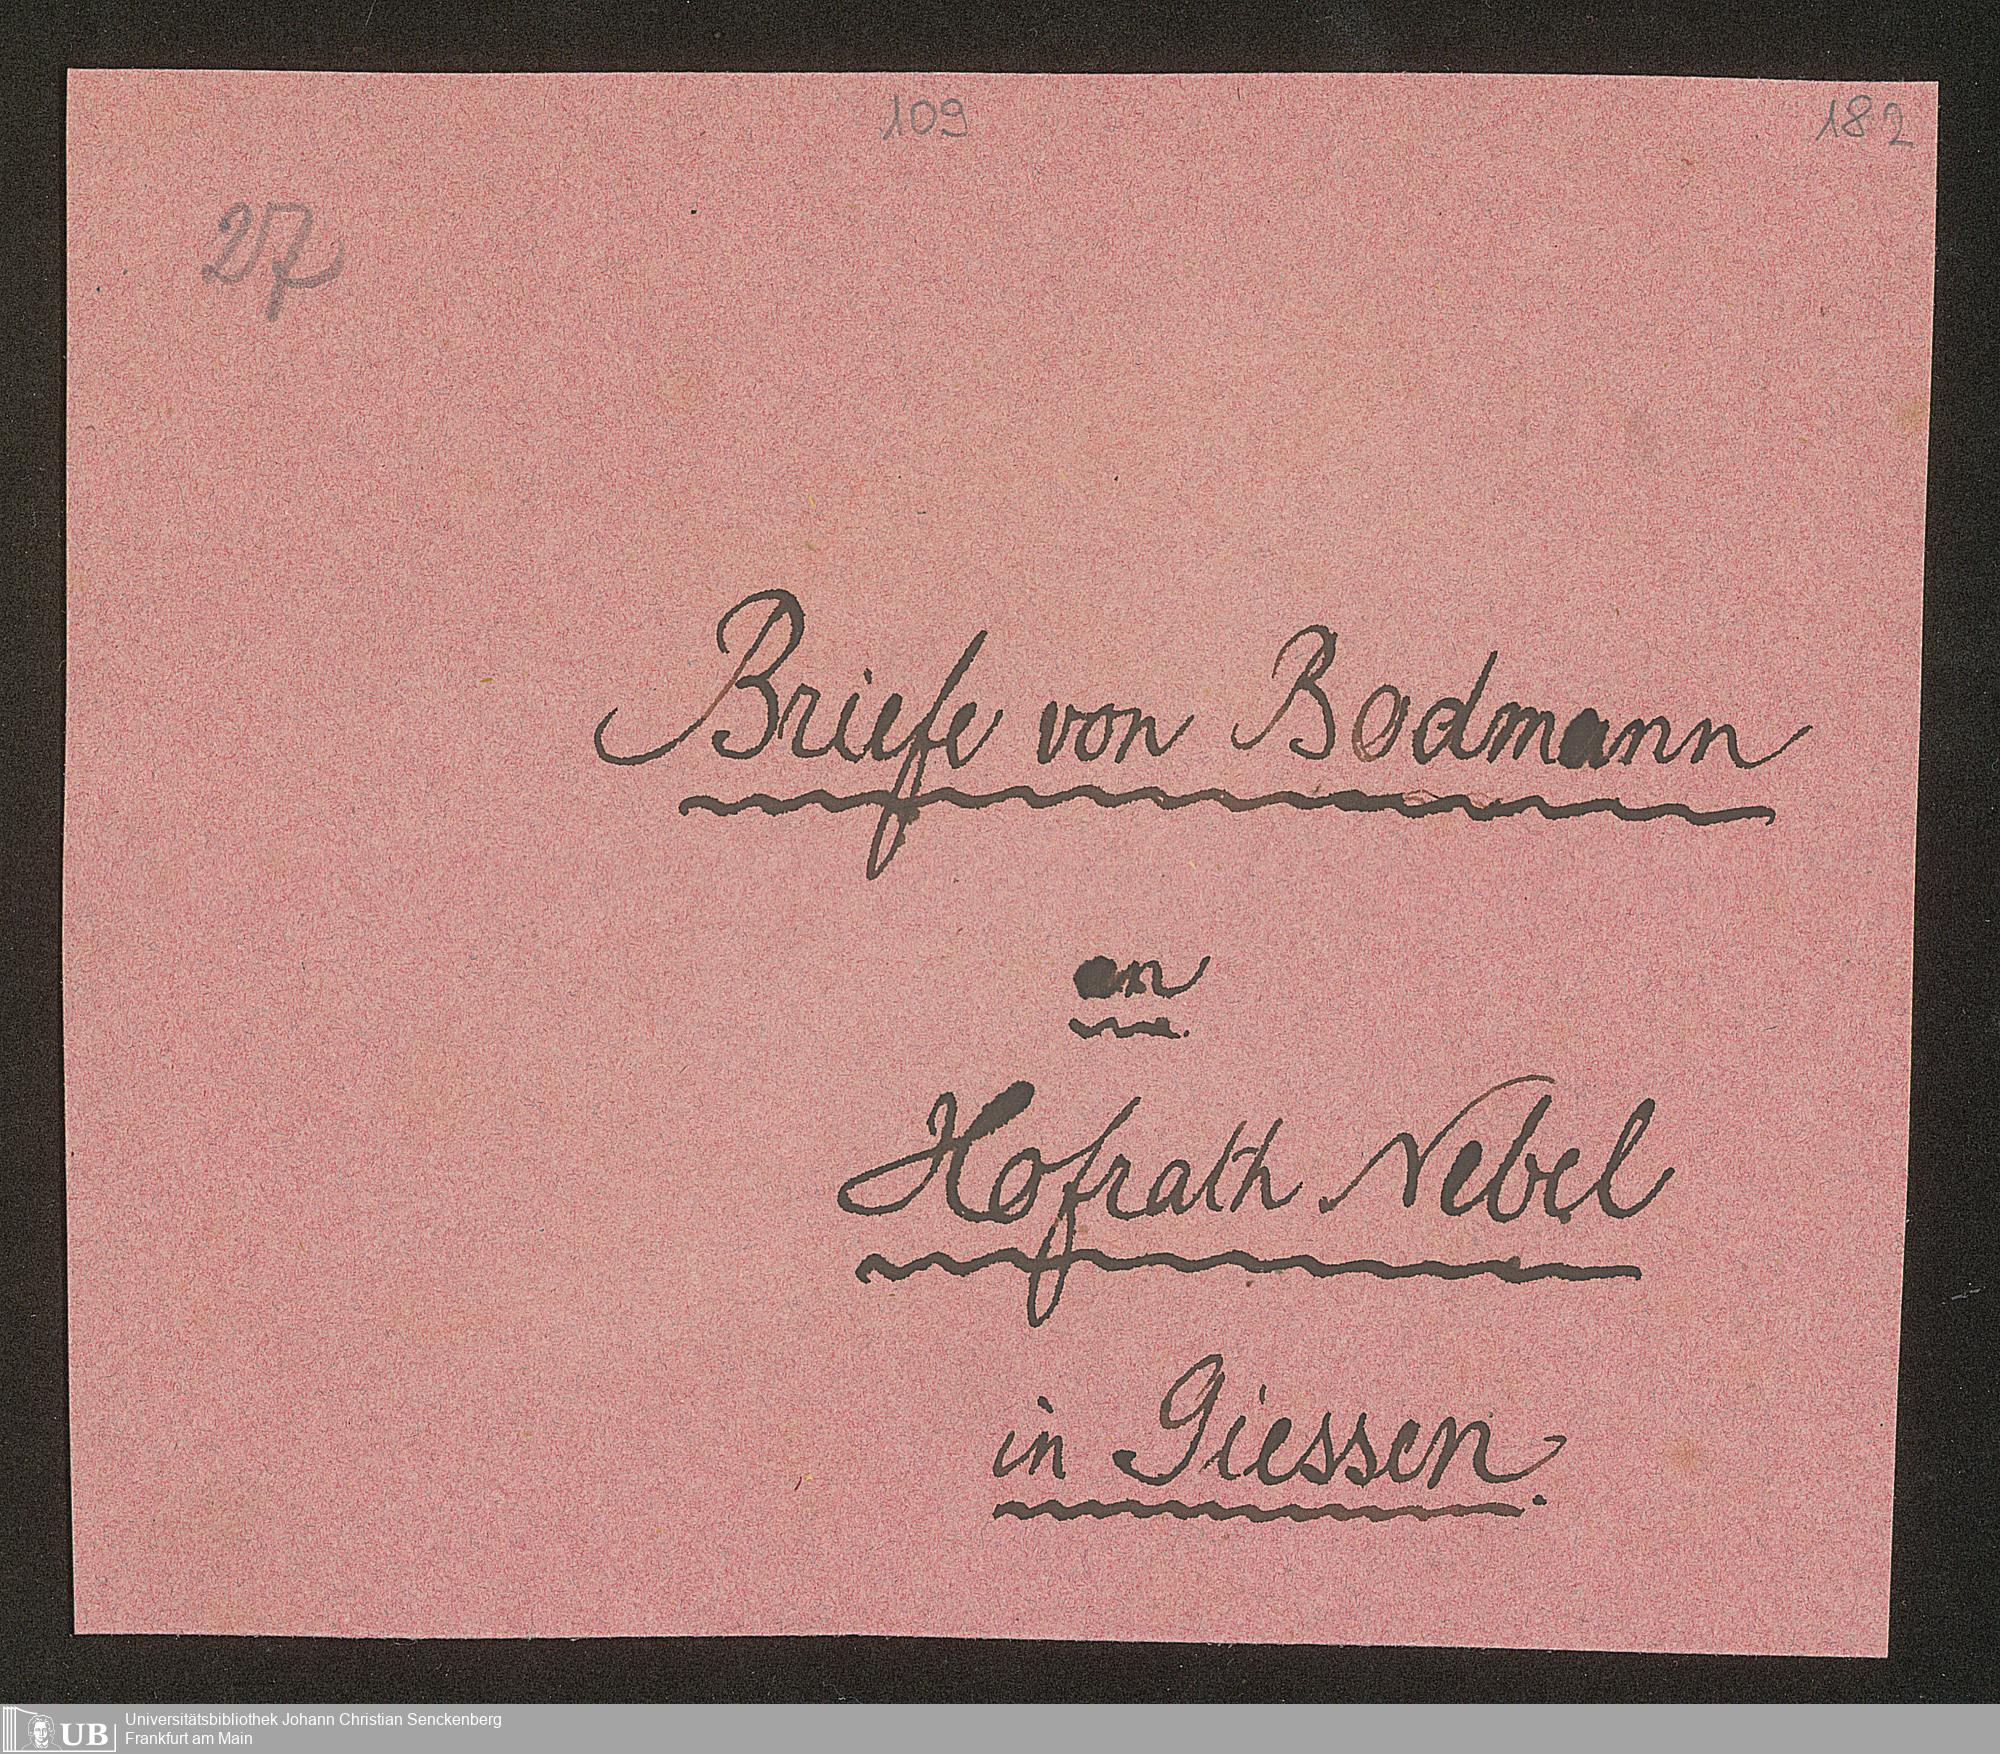 109
182
27
Briefe von Bodmann
an
Hofrath Nebel
in Giessen.
UB
Universitätsbibliothek Johann Christian Senckenberg
Frankfurt am Main